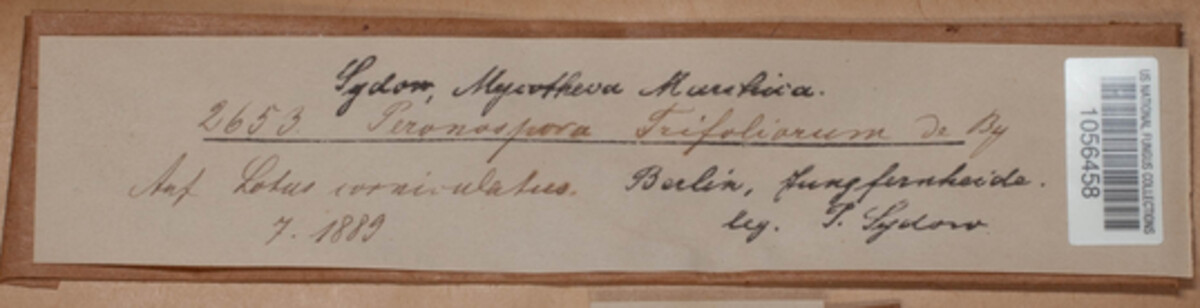 Sydow, Mycotheca Marchica.
2653. Peronospora Trifoliorum de By
Auf Lotus corniculatus. Berlin, Jungfernheide.
7. 1889 leg. P. Sydow
US NATIONAL FUNGUS COLLECTIONS
1056458